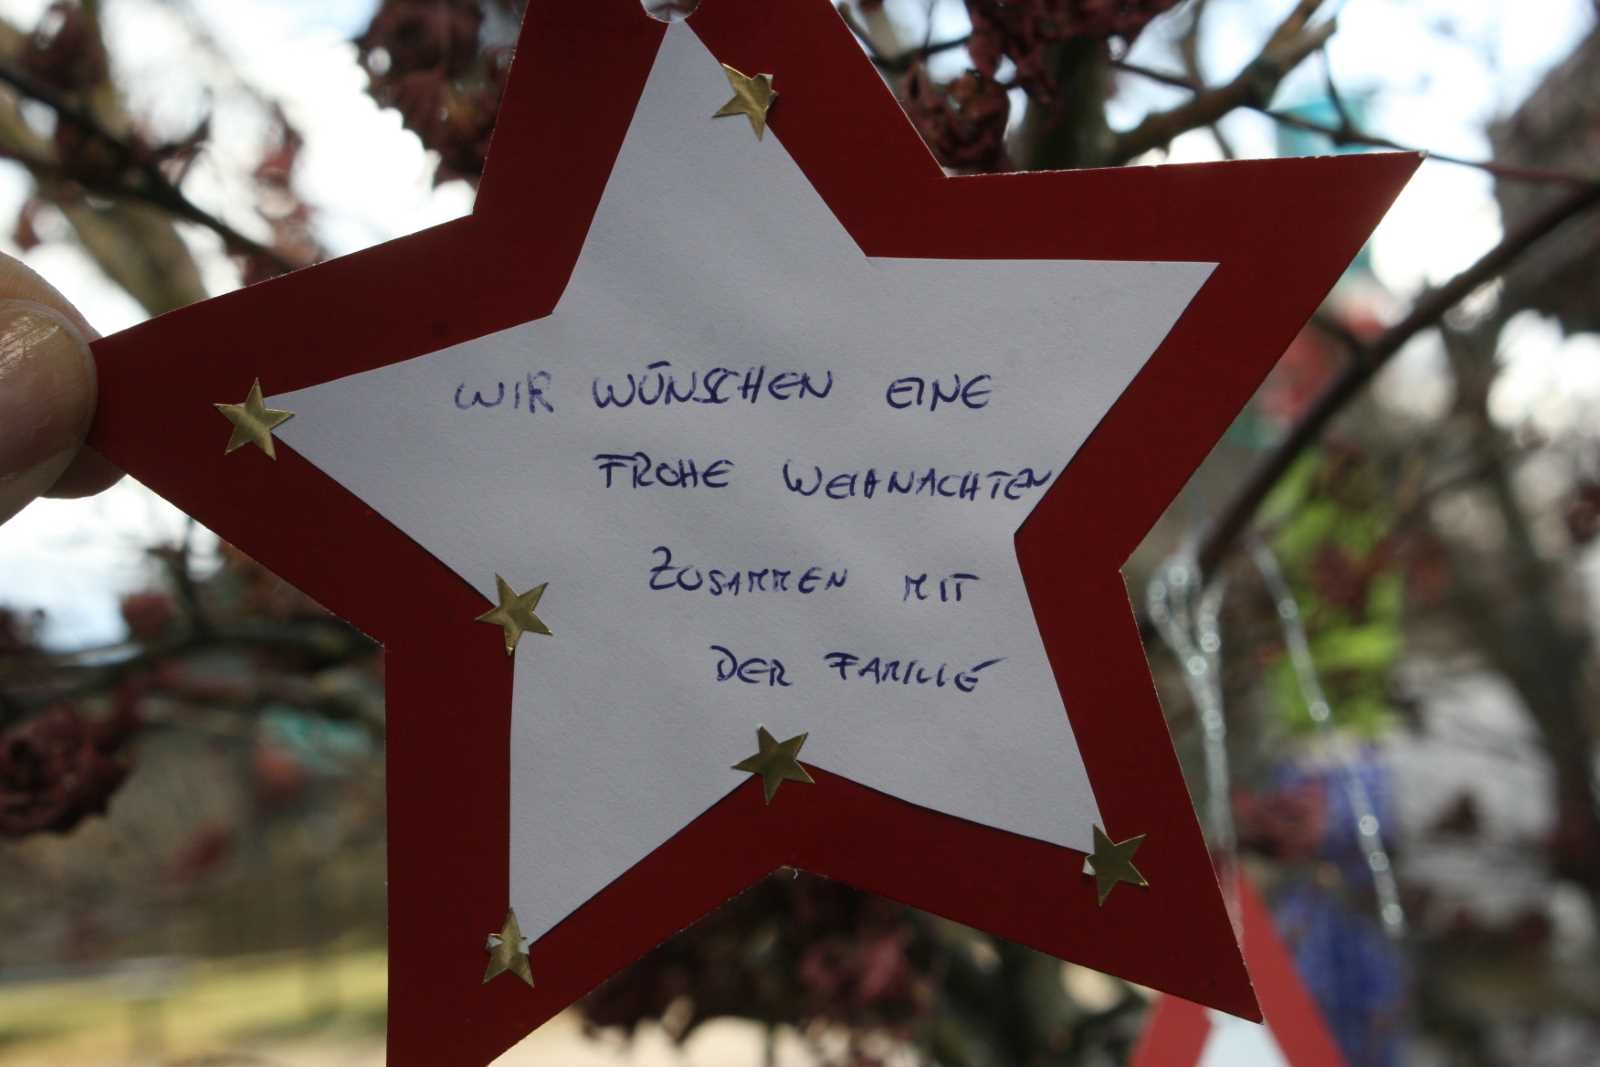 WIR WÜNSCHEN EINE
FROHE WEIHNACHTEN
ZUSAMMEN MIT
DER FAMILIE